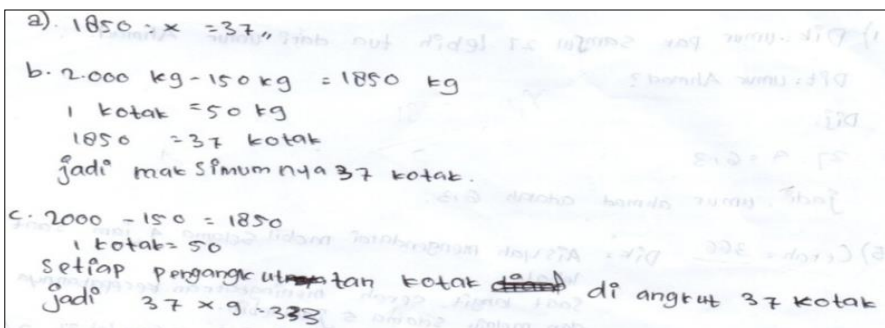 a). 1850 : x = 37,,
b. 2.000 kg - 150 kg = 1850 kg
1 kotak = 50 kg
1850 = 37 kotak
jadi maksimumnya 37 kotak.
c. 2000 - 150 = 1850
1 kotak = 50
setiap pengangkutan kotak di angkut 37 kotak
jadi 37 x 9 = 333